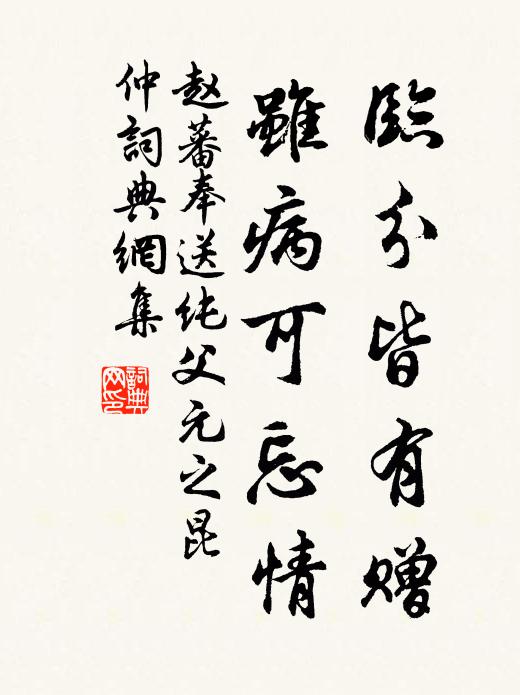 臨分皆有贈
雖病可忘情
赵蕃奉送純父元之昆
仲詞典網集
詞典網印